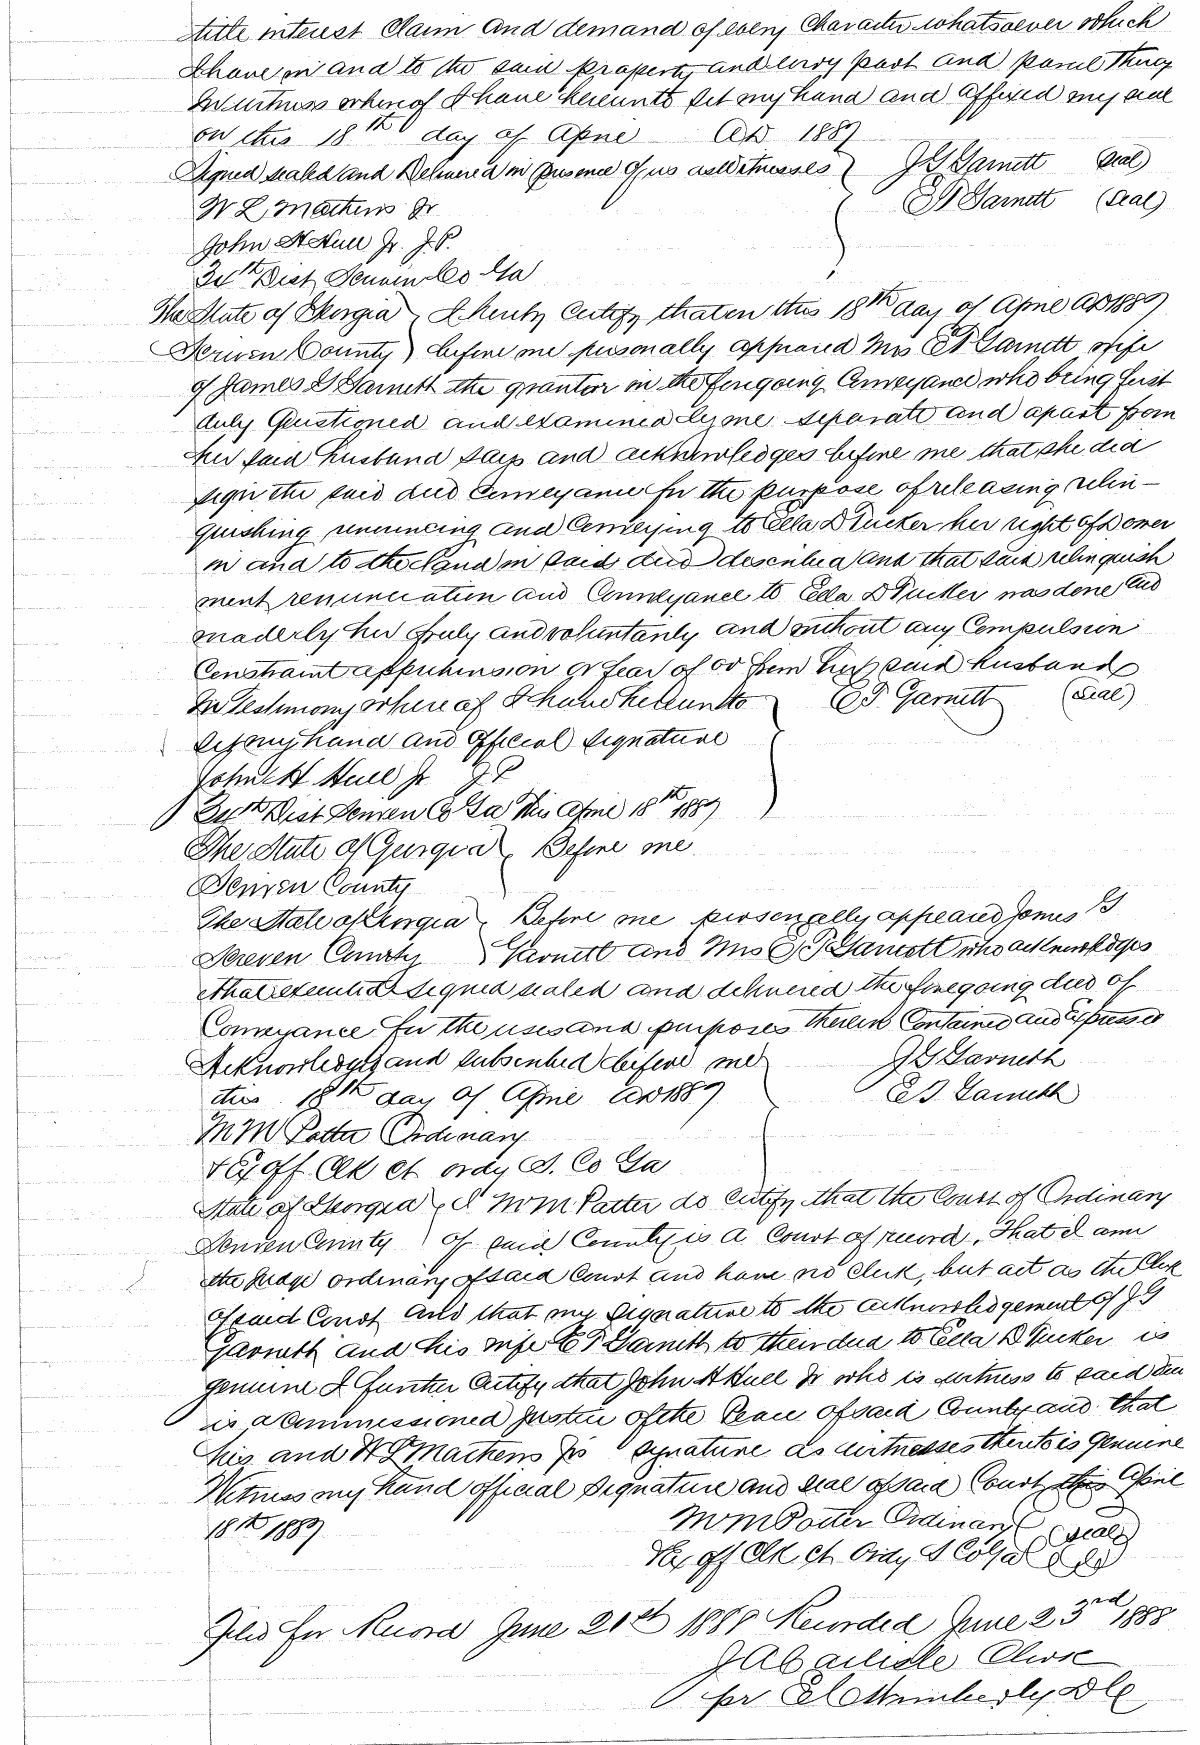 title interest Claim and demand of every Character whatsoever which
I have in and to the said property and every part and parcel thereof
In witness whereof I have hereunto set my hand and affixed my seal
on this 18th day of April AD 1889
Signed sealed and Delivered in presence of us as witnesses J G Garnett (Seal)
W L Mathews Jr E T Garnett (Seal)
John H Hull Jr. J.P.
34th Dist Screven Co Ga
The State of Georgia I hereby Certify that on this 18th day of April AD 1889
Scriven County before me personally appeared Mrs E T Garnett wife
of James G Garnett the grantor in the foregoing Conveyance who being first
duly Questioned and examined by me separate and apart from
her said husband says and acknowledges before me that she did
sign the said deed Conveyance for the purpose of releasing relin-
quishing renouncing and Conveying to Ella D Tucker her right of Dower
in and to the Land in said deed described and that said relinquish
ment renunciation and Conveyance to Ella D Tucker was done and
made by her freely and voluntarily and without any Compulsion
Constraint apprehension or fear of or from her said husband
In Testimony where of I have hereunto E T Garnett (Seal)
set my hand and Official Signature
John H Hull Jr J P
34th Dist Scriven Co Ga this April 18th 1889
The State of Georgia Before me
Scriven County
The State of Georgia Before me personally appeared James G
Screven County Garnett and Mrs E T Garnett who acknowledges
that executed signed sealed and delivered the foregoing deed of
Conveyance for the uses and purposes therein Contained and Expressed
Acknowledged and subscribed before me J G Garnett
this 18th day of April AD 1889 E T Garnett
M M Potter Ordinary
& Ex off Clk Ct ordy S. Co Ga
State of Georgia I M M Potter do Certify that the Court of Ordinary
Scriven County of said County is a Court of record, That I am
the Judge ordinary of said Court and have no Clerk, but act as the Clerk
of said Court and that my signature to the acknowledgement of J G
Garnett and his wife E T Garnett to their deed to Ella D Tucker is
genuine I further Certify that John H Hull Jr who is witness to said deed
is a Commissioned Justice of the Peace of said County and that
his and W L Mathews Jrs signature as witnesses thereto is genuine
Witness my hand official Signature and seal of said Court this April
18th 1889 M M Potter Ordinary (Seal)
& Ex off Clk Ct Ordy S Co Ga
Filed for Record June 20th 1888 Recorded June 23rd 1888
J A Clerk
per Wimberly D C